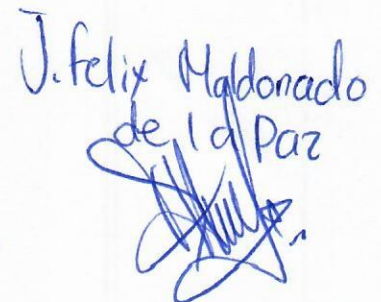 J. Felix Maldonado
de la Paz